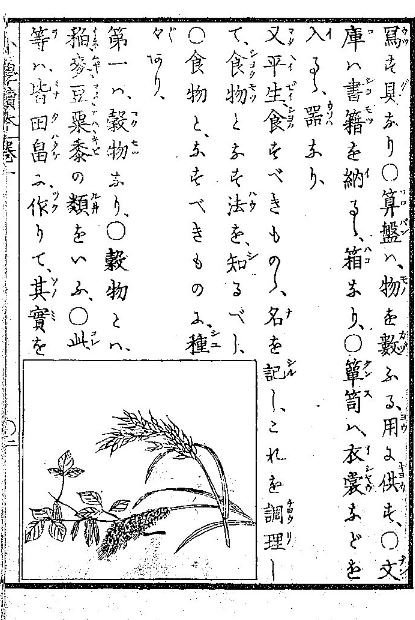 寫す具なり〇算盤ハ、物を數ふる、用に供す、〇文
庫ハ書籍を納るゝ箱なり、〇簞笥ハ、衣裳などを
入るゝ器なり、
又平生食すべきものゝ、名を記し、これを調理し
て、食物となす法を、知るべし、
〇食物と、なすべきものに、種
々あり、
第一ハ、穀物なり、〇穀物とハ、
稲麥豆粟黍の類をいふ、〇此
等ハ、皆田畠に作りて、其實を